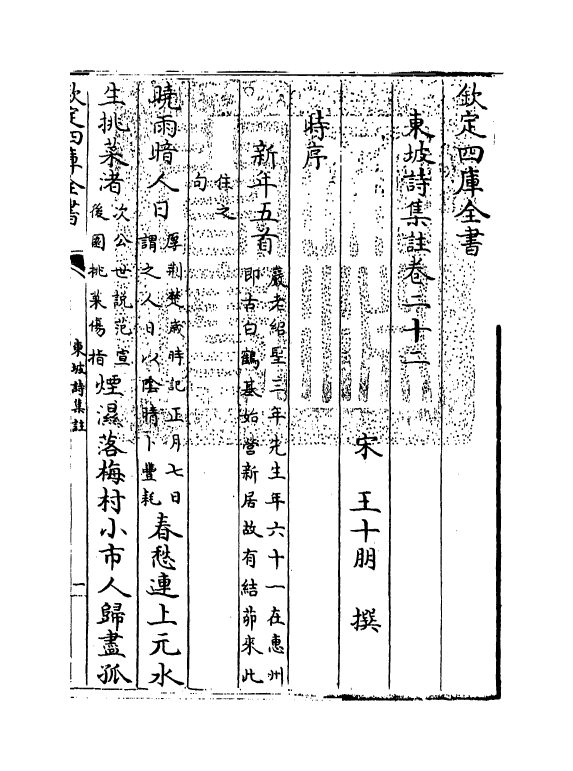 欽定四庫全書
東坡詩集註卷二十二
宋 王十朋 撰
時序
新年五首
嚴老紹聖三年先生年六十一在惠州
即古白鶴基始營新居故有結茆來此
住之
句
曉雨暗人日
厚荆楚歲時記正月七日
謂之人日以陰晴卜豐耗
春愁連上元水
生挑菜者
次公世說范宣
後園挑菜傷指
煙濕落梅村小市人歸盡孤
欽定四庫全書
東坡詩集註
一